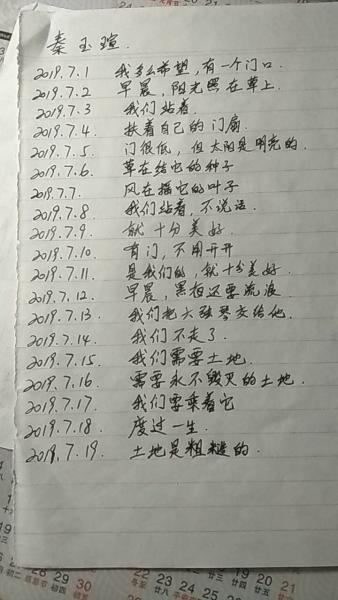 秦玉瑄.
2019.7.1 我多么希望,有一个门口.
2019.7.2 早晨,阳光照在草上.
2019.7.3 我们站着.
2019.7.4. 扶着自己的门扇.
2019.7.5. 门很低,但太阳是明亮的.
2019.7.6. 草在结它的种子
2019.7.7. 风在摇它的叶子
2019.7.8 我们站着,不说话.
2019.7.9. 就十分美好.
2019.7.10. 有门,不用开开
2019.7.11. 是我们的,就十分美好.
2019.7.12. 早晨,黑夜还要流浪.
2019.7.13. 我们把六弦琴交给他.
2019.7.14. 我们不走了.
2019.7.15. 我们需要土地.
2019.7.16. 需要永不毁灭的土地.
2019.7.17 我们要乘着它
2019.7.18 度过一生.
2019.7.19. 土地是粗糙的.